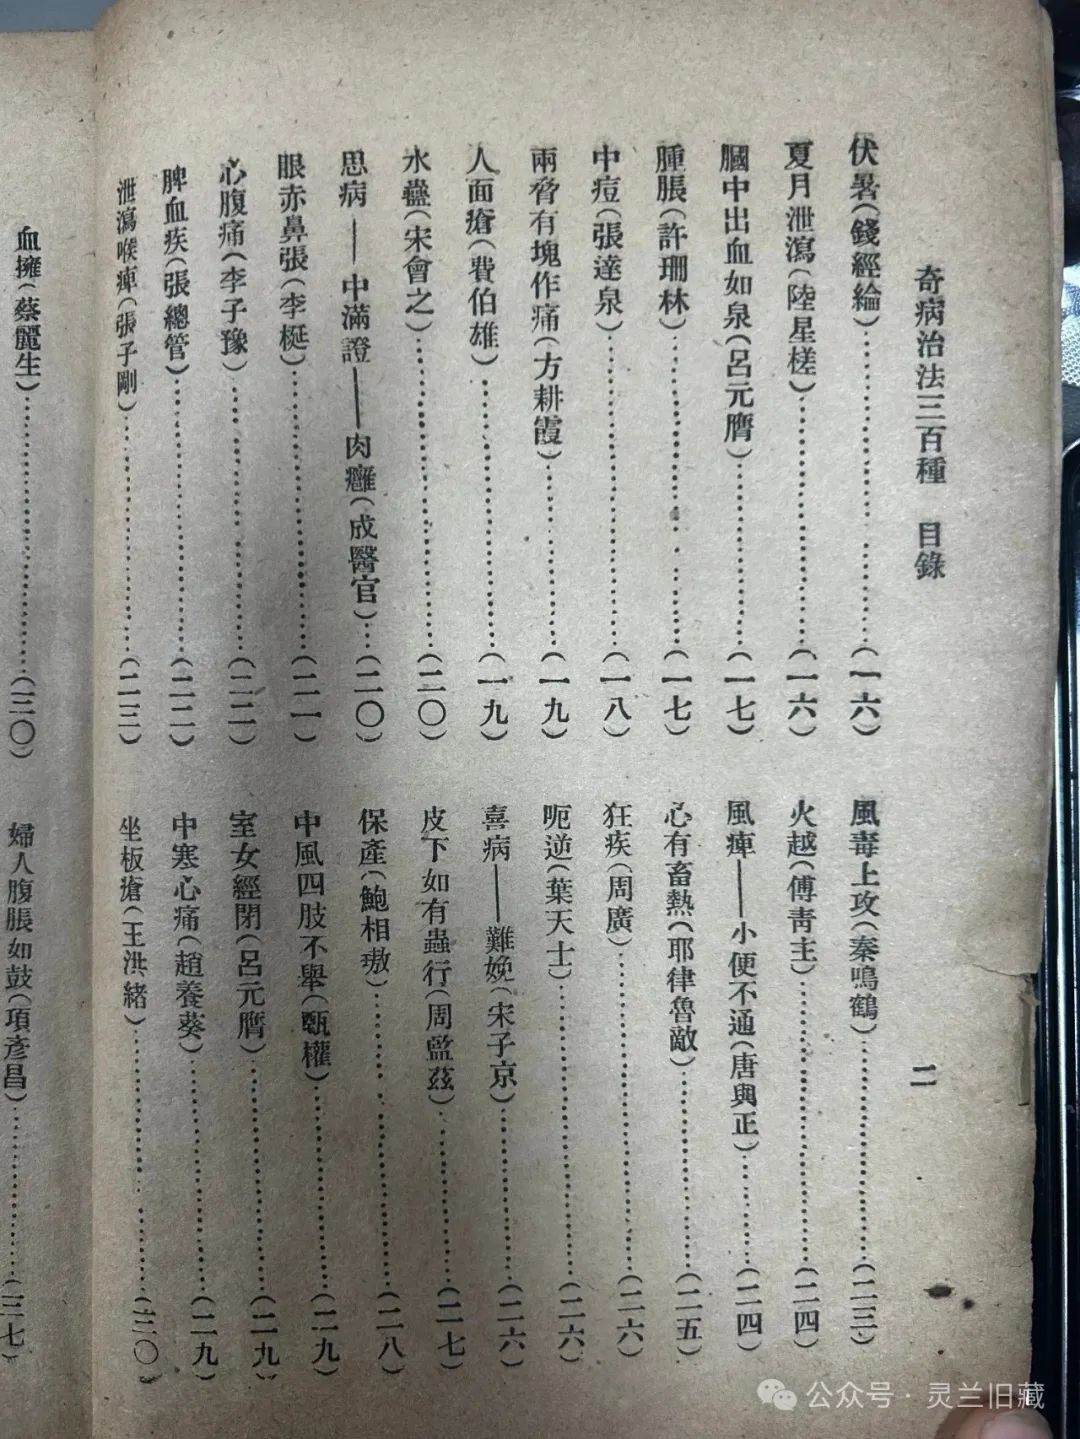 奇病治法三百種　目錄　二
伏暑(錢經綸)……(一六)
夏月泄瀉(陸星槎)……(一六)
膕中出血如泉(呂元膺)……(一七)
腫脹(許珊林)……(一七)
中痘(張達泉)……(一八)
兩脅有塊作痛(方耕霞)……(一九)
人面瘡(費伯雄)……(一九)
水蠱(宋會之)……(二〇)
思病——中滿證——肉癰(成醫官)……(二〇)
眼赤鼻張(李梴)……(二一)
心腹痛(李子豫)……(二二)
脾血疾(張總管)……(二二)
泄瀉喉痺(張子剛)……(二三)
風毒上攻(秦鳴鶴)……(二三)
火越(傅靑主)……(二四)
風痺——小便不通(唐與正)……(二四)
心有畜熱(耶律魯敵)……(二五)
狂疾(周廣)……(二六)
呃逆(葉天士)……(二六)
喜病——難娩(宋子京)……(二六)
皮下如有蟲行(周監茲)……(二七)
保產(鮑相璈)……(二八)
中風四肢不舉(甄權)……(二九)
室女經閉(呂元膺)……(二九)
中寒心痛(趙養葵)……(二九)
坐板瘡(王洪緒)……(三〇)
血擁(蔡麗生)……(三〇)
婦人腹脹如鼓(項彥昌)……(三七)
公众号·灵兰旧藏